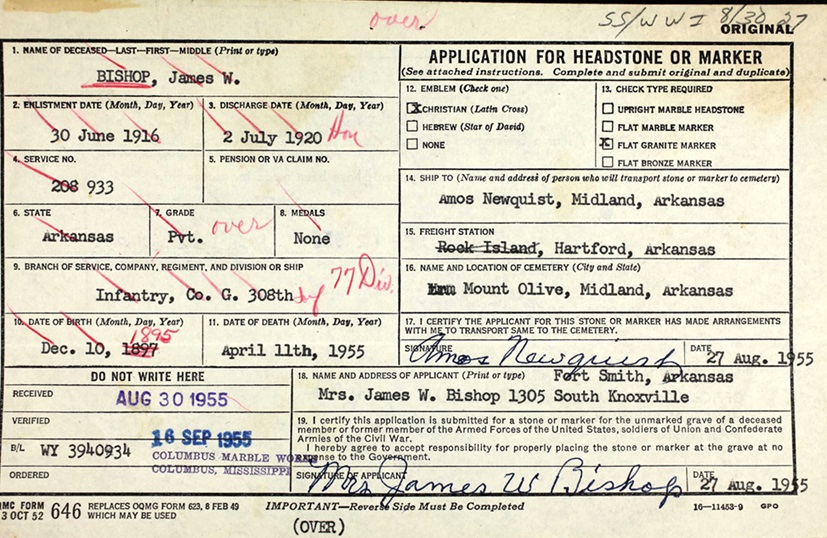 over
SS/WWI 8/30 27
ORIGINAL
1. NAME OF DECEASED—LAST—FIRST—MIDDLE (Print or type)
BISHOP, James W.
2. ENLISTMENT DATE (Month, Day, Year)
30 June 1916
3. DISCHARGE DATE (Month, Day, Year)
2 July 1920 Hon
4. SERVICE NO.
208 933
5. PENSION OR VA CLAIM NO.
6. STATE
Arkansas
7. GRADE
Pvt. over
8. MEDALS
None
9. BRANCH OF SERVICE, COMPANY, REGIMENT, AND DIVISION OR SHIP
Infantry, Co. G. 308th Inf 77 Div.
10. DATE OF BIRTH (Month, Day, Year)
1895
Dec. 10, 1897
11. DATE OF DEATH (Month, Day, Year)
April 11th, 1955
APPLICATION FOR HEADSTONE OR MARKER
(See attached instructions. Complete and submit original and duplicate)
12. EMBLEM (Check one)
X CHRISTIAN (Latin Cross)
HEBREW (Star of David)
NONE
13. CHECK TYPE REQUIRED
UPRIGHT MARBLE HEADSTONE
FLAT MARBLE MARKER
X FLAT GRANITE MARKER
FLAT BRONZE MARKER
14. SHIP TO (Name and address of person who will transport stone or marker to cemetery)
Amos Newquist, Midland, Arkansas
15. FREIGHT STATION
Rock Island, Hartford, Arkansas
16. NAME AND LOCATION OF CEMETERY (City and State)
Mount Olive, Midland, Arkansas
17. I CERTIFY THE APPLICANT FOR THIS STONE OR MARKER HAS MADE ARRANGEMENTS
WITH ME TO TRANSPORT SAME TO THE CEMETERY.
SIGNATURE Amos Newquist
DATE 27 Aug. 1955
DO NOT WRITE HERE
RECEIVED AUG 30 1955
VERIFIED
16 SEP 1955
B/L WY 3940934
COLUMBUS MARBLE WORKS
COLUMBUS, MISSISSIPPI
ORDERED
18. NAME AND ADDRESS OF APPLICANT (Print or type) Fort Smith, Arkansas
Mrs. James W. Bishop 1305 South Knoxville
19. I certify this application is submitted for a stone or marker for the unmarked grave of a deceased
member or former member of the Armed Forces of the United States, soldiers of Union and Confederate
Armies of the Civil War.
I hereby agree to accept responsibility for properly placing the stone or marker at the grave at no
expense to the Government.
SIGNATURE OF APPLICANT Mrs James W Bishop
DATE 27 Aug. 1955
QMC FORM 646 REPLACES OQMG FORM 623, 8 FEB 49
3 OCT 52 WHICH MAY BE USED
IMPORTANT—Reverse Side Must be Completed
16—11453-9 GPO
(OVER)